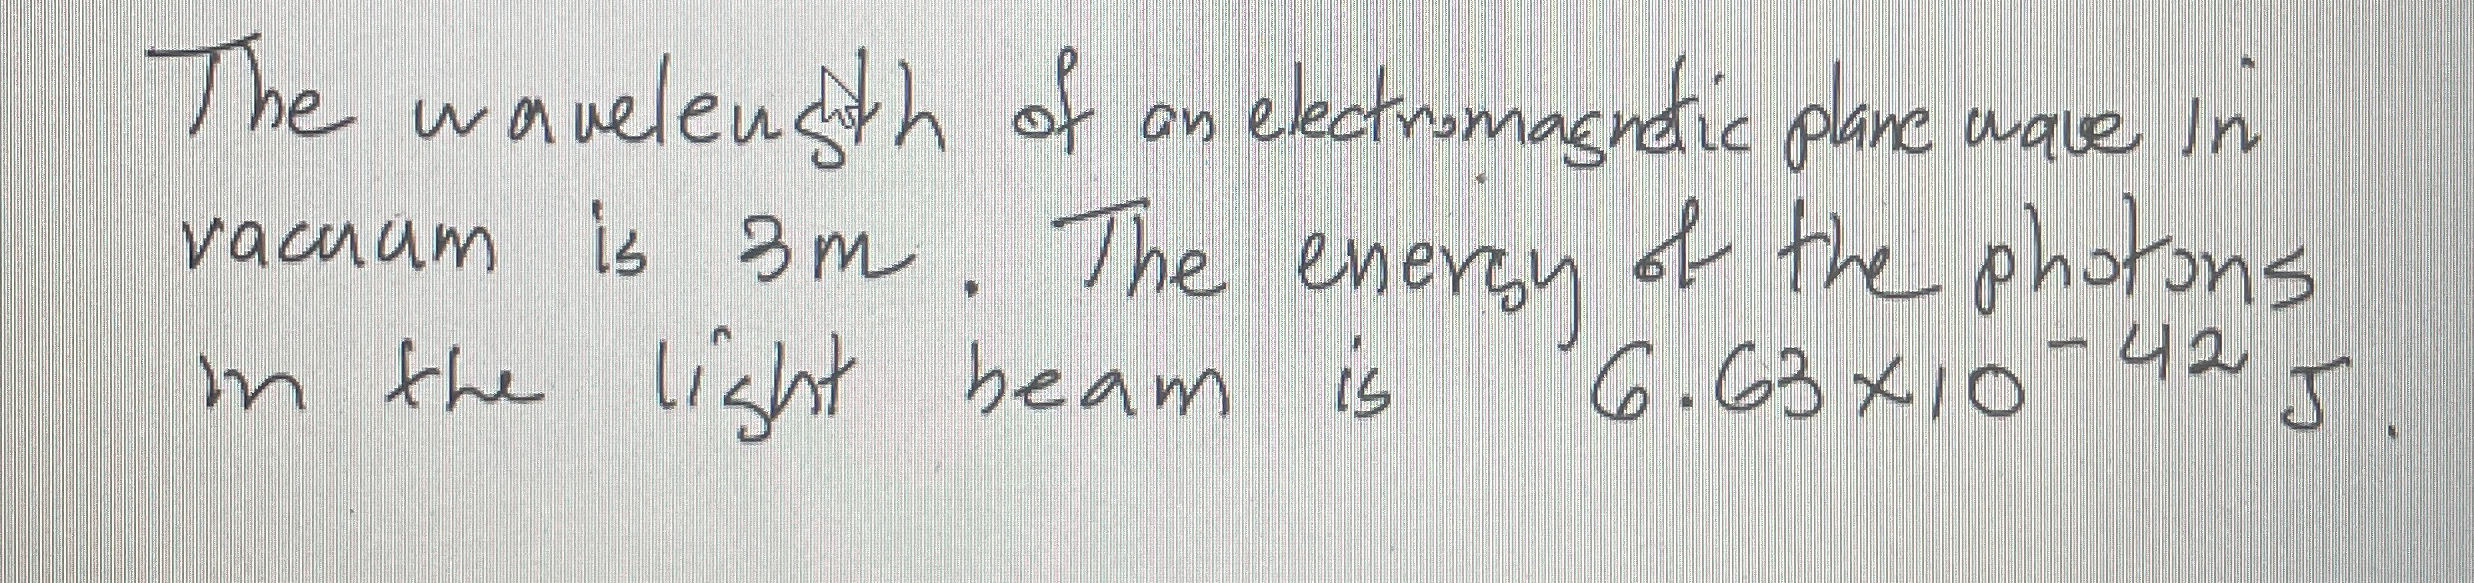 The wavelength of an electromagnetic plane wave in
vacuum is 3m. The energy of the photons
in the light beam is 6.63×10⁻⁴² J.